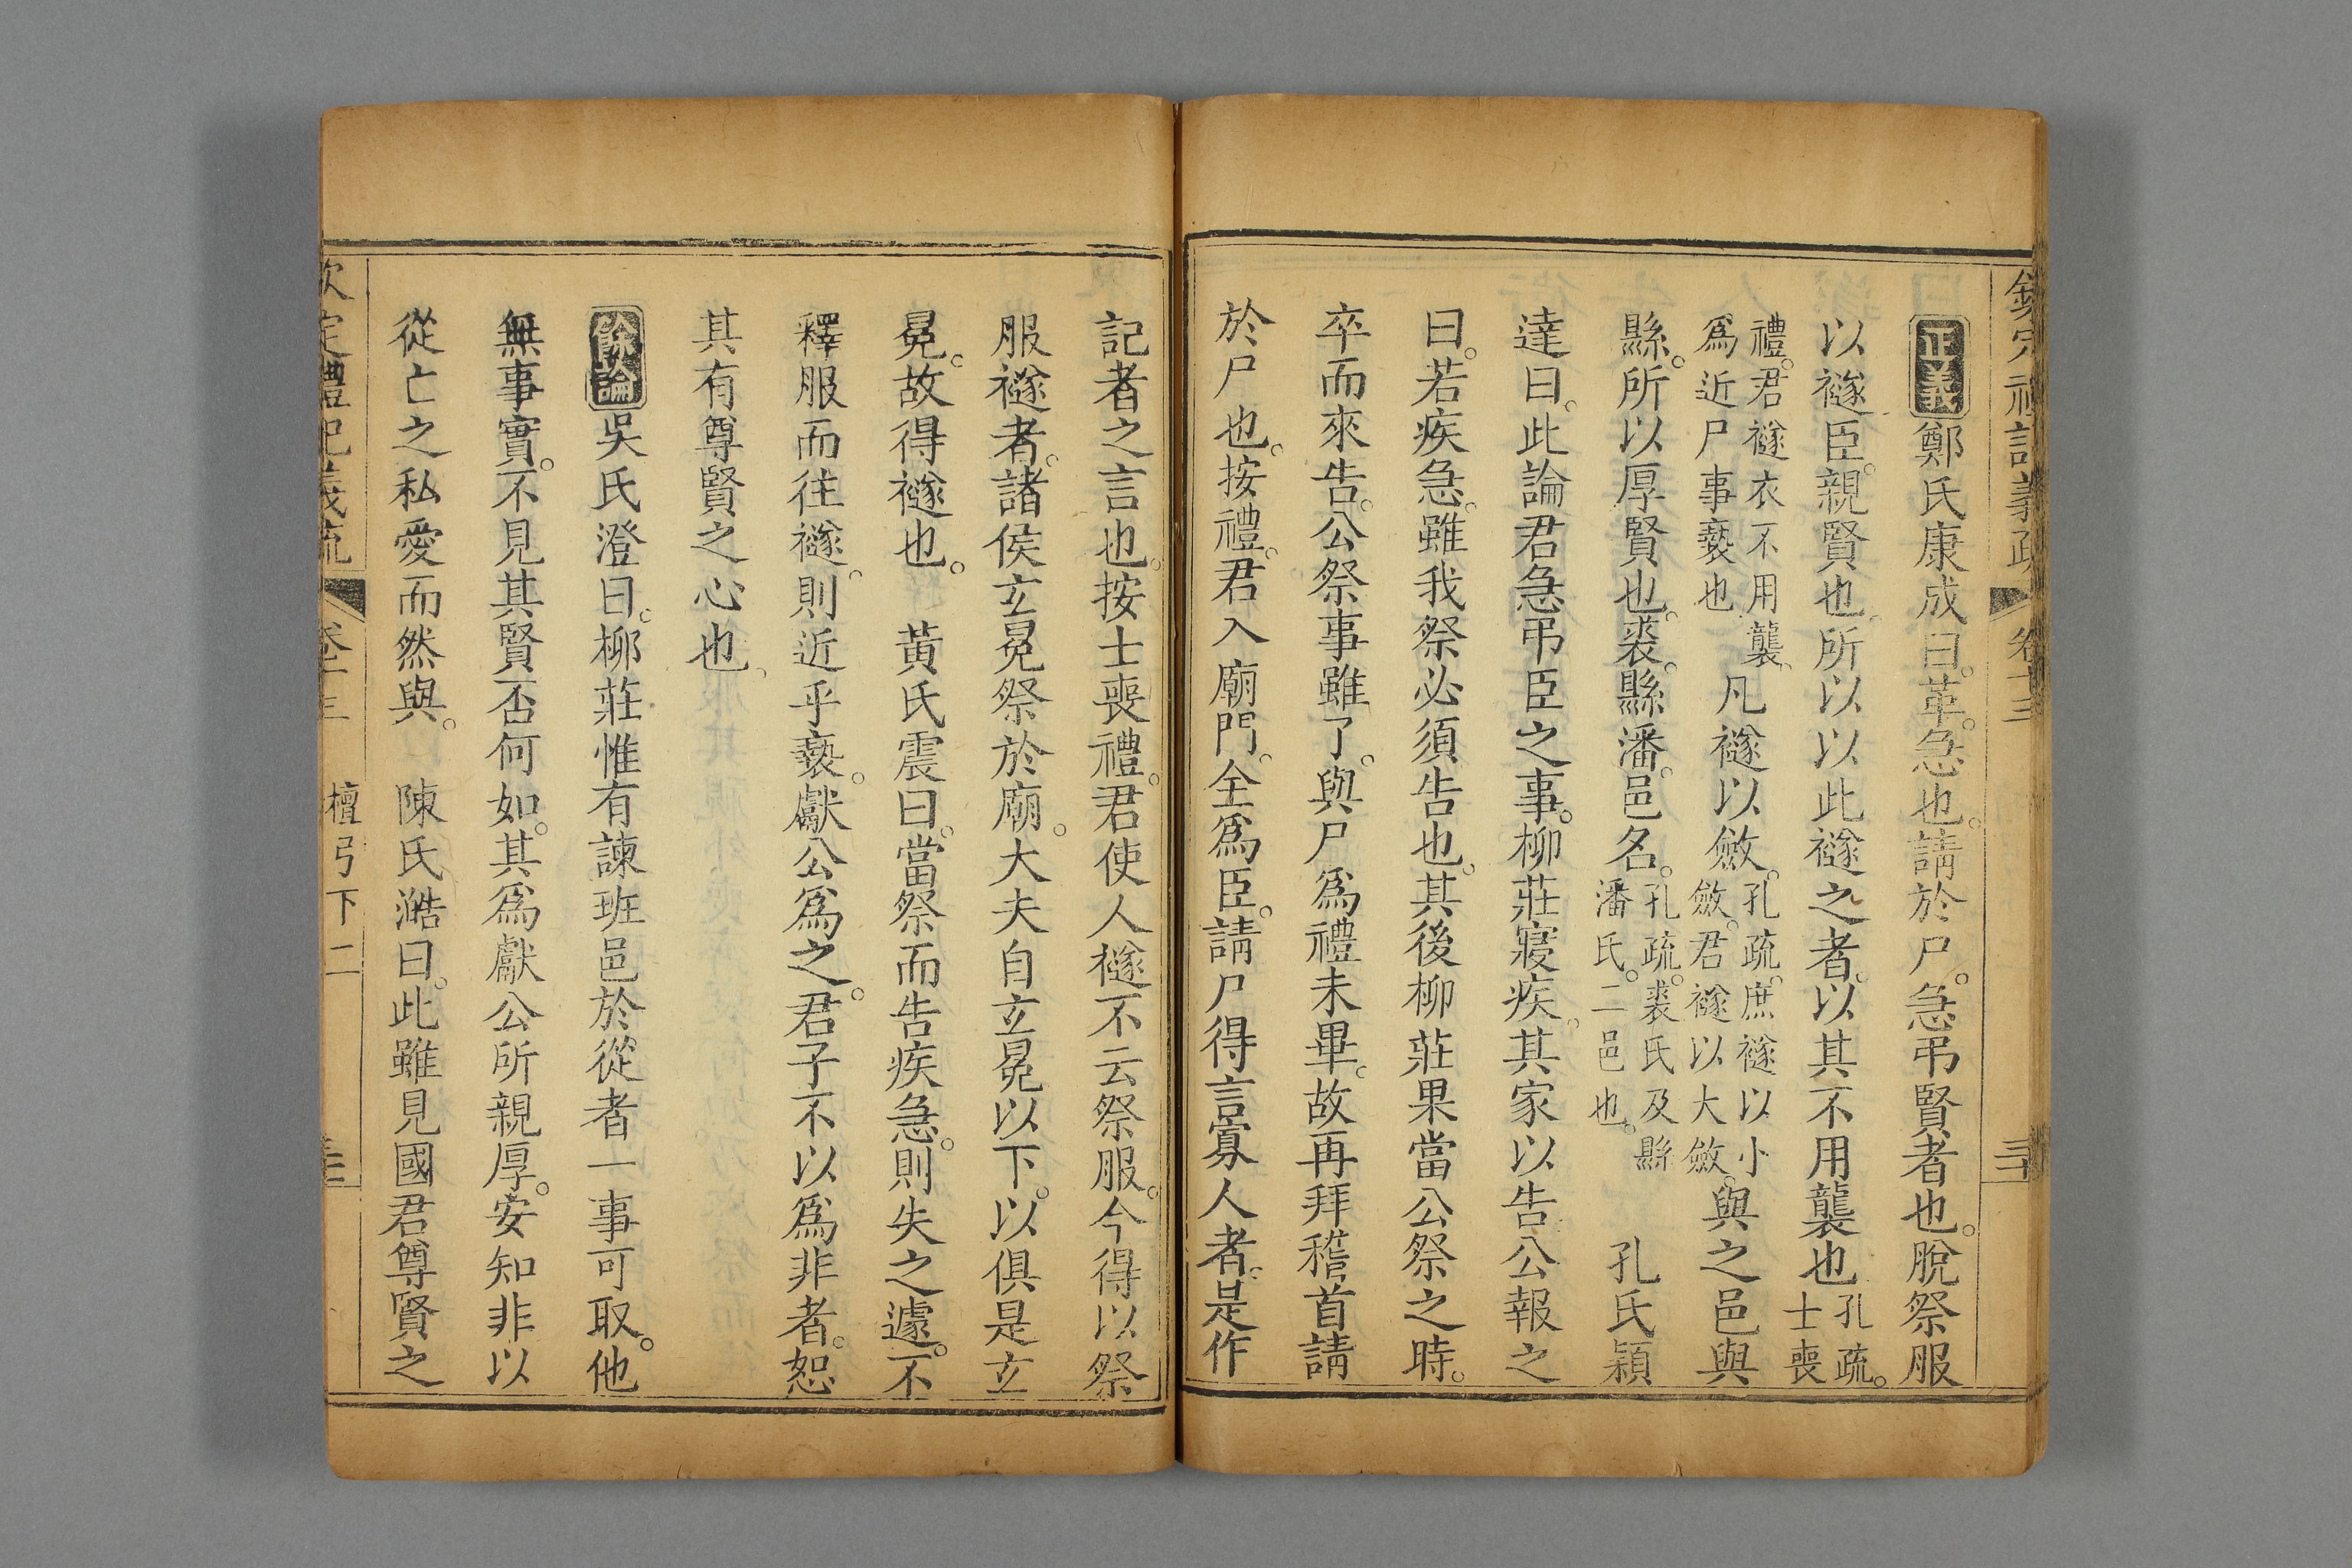 欽定禮記義疏 卷十三 三十
正義鄭氏康成曰。革。急也。請於尸。急弔賢者也。脫祭服
以襚臣。親賢也。所以以此襚之者。以其不用襲也孔疏。士喪
禮。君襚衣不用襲。爲近尸事褻也凡襚以斂。孔疏。庶襚以小斂。君襚以大斂。與之邑與
縣。所以厚賢也。裘。縣潘。邑名。孔疏。裘氏及縣潘氏。二邑也。 孔氏穎
達曰。此論君急弔臣之事。柳莊寢疾。其家以告公報之
曰。若疾急。雖我祭必須告也。其後柳莊果當公祭之時。
卒而來告。公祭事雖了。與尸爲禮未畢。故再拜稽首請
於尸也。按禮。君入廟門。全爲臣。請尸得言寡人者。是作
記者之言也。按士喪禮。君使人襚不云祭服。今得以祭
服襚者。諸侯玄冕祭於廟。大夫自玄冕以下。以俱是玄
冕。故得襚也。 黃氏震曰。當祭而告疾急。則失之遽。不
釋服而往襚。則近乎褻。獻公爲之。君子不以爲非者。恕
其有尊賢之心也
餘論吳氏澄曰。柳莊惟有諫班邑於從者一事可取。他
無事實。不見其賢否何如。其爲獻公所親厚。安知非以
從亡之私愛而然與。 陳氏澔曰。此雖見國君尊賢之
欽定禮記義疏 卷十三 檀弓下二 三十